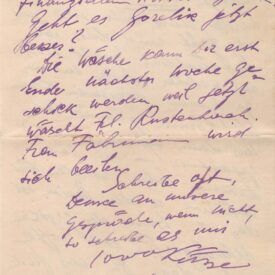 Geht es jetzt
besser?
Die Wäsche kann Dir erst
Ende nächster Woche ge-
schickt werden weil jetzt
wäscht Frl.
Frau wird
sich beeilen
Schreibe oft,
Denke an unsere
Gespräche, wenn nicht,
so schreibe es mir